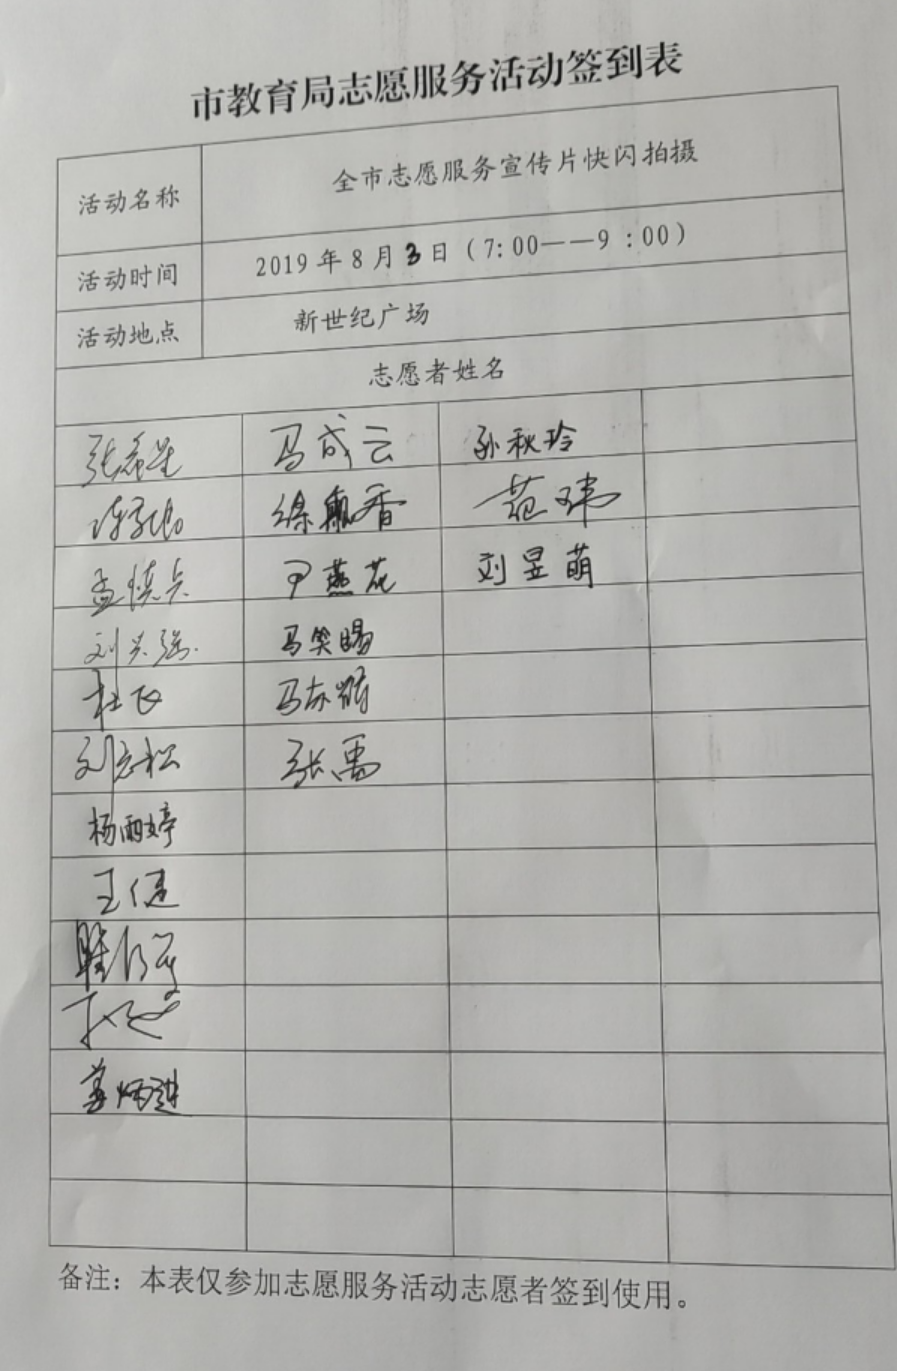 市教育局志愿服务活动签到表
活动名称 全市志愿服务宣传片快闪拍摄
活动时间 2019年8月3日（7:00——9:00）
活动地点 新世纪广场
志愿者姓名
马成云 孙秋玲
范玮
孟慎兵 尹燕花 刘昱萌
刘兴强 马笑赐
杜飞
刘志松 张禹
杨雨婷
王健
姜炳进
备注：本表仅参加志愿服务活动志愿者签到使用。